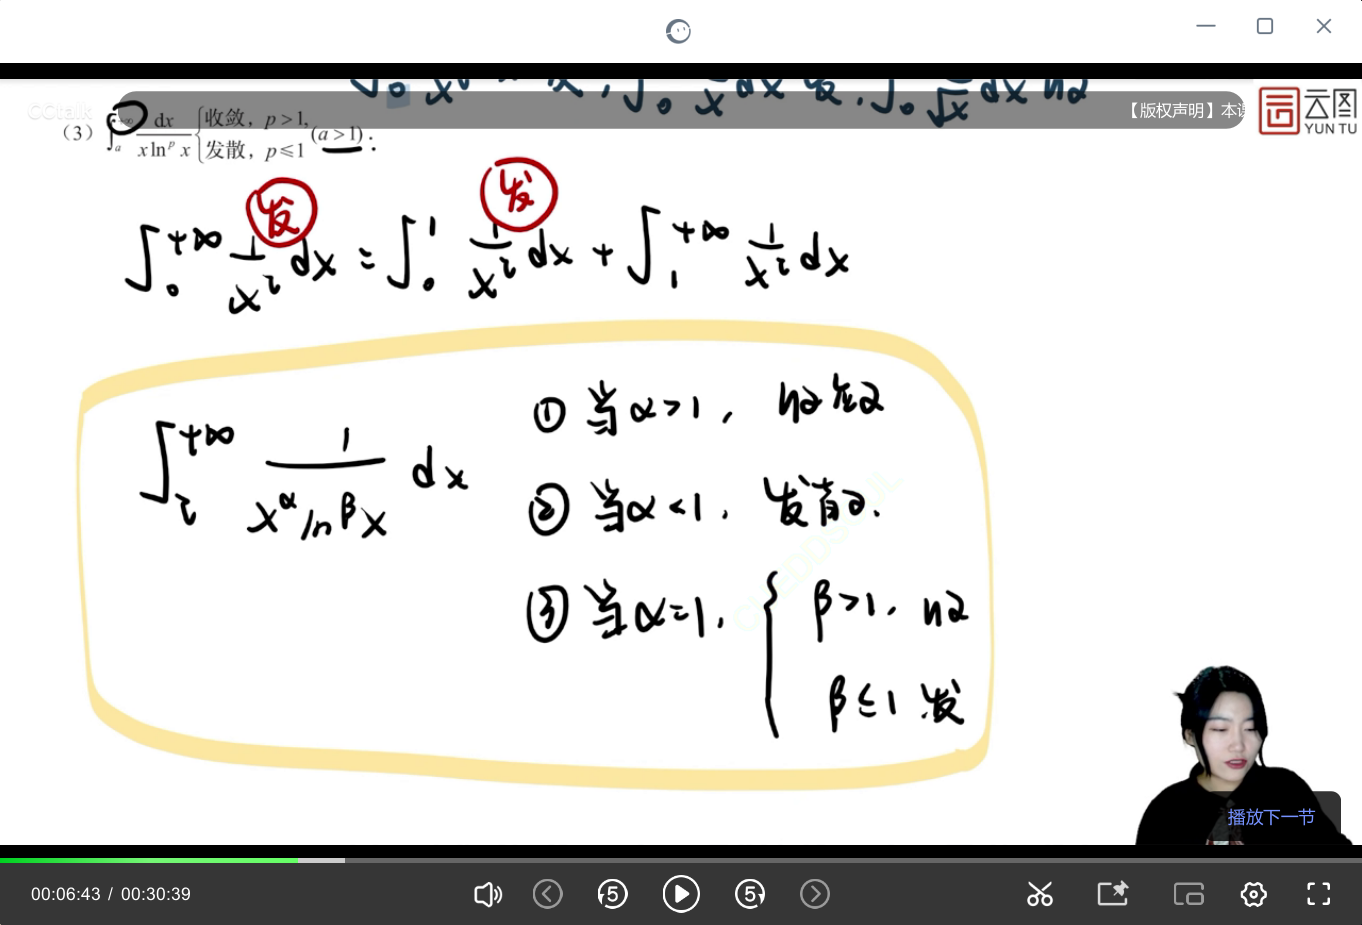 CCtalk
【版权声明】本课
云图
YUN TU
∫₀ dx 发, ∫₀ 1/√x dx 收敛
(3) ∫ₐ^{+∞} dx/(x lnᵖ x) { 收敛, p>1, 发散, p≤1 (a>1):
发 发
∫₀^{+∞} 1/x² dx = ∫₀¹ 1/x² dx + ∫₁^{+∞} 1/x² dx
∫₂^{+∞} 1/(x^α ln^β x) dx
① 当α>1,
② 当α<1,
③ 当α=1, { β>1, 收敛
β≤1 发
播放下一节
00:06:43 / 00:30:39
5 5